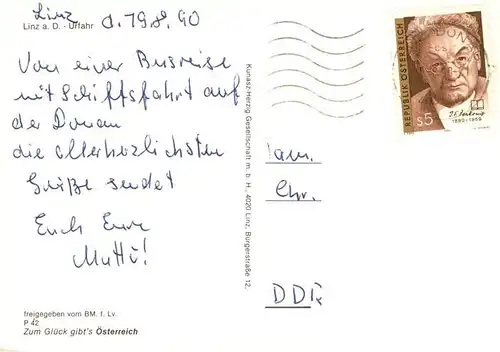 Linz d. 19.8.90
Linz a. D. - Urfahr
Von einer Busreise
mit Schiffsfahrt auf
der Donau
die allerherzlichsten
Grüße sendet
Euch Eure
Mutti!
freigegeben vom BM. f. Lv.
P 42
Zum Glück gibt's Österreich
Kunasz-Herzig Gesellschaft m. b. H., 4020 Linz, Bürgerstraße 12,
REPUBLIK ÖSTERREICH
S5
1892-1969
Fam.
Chr.
DDR